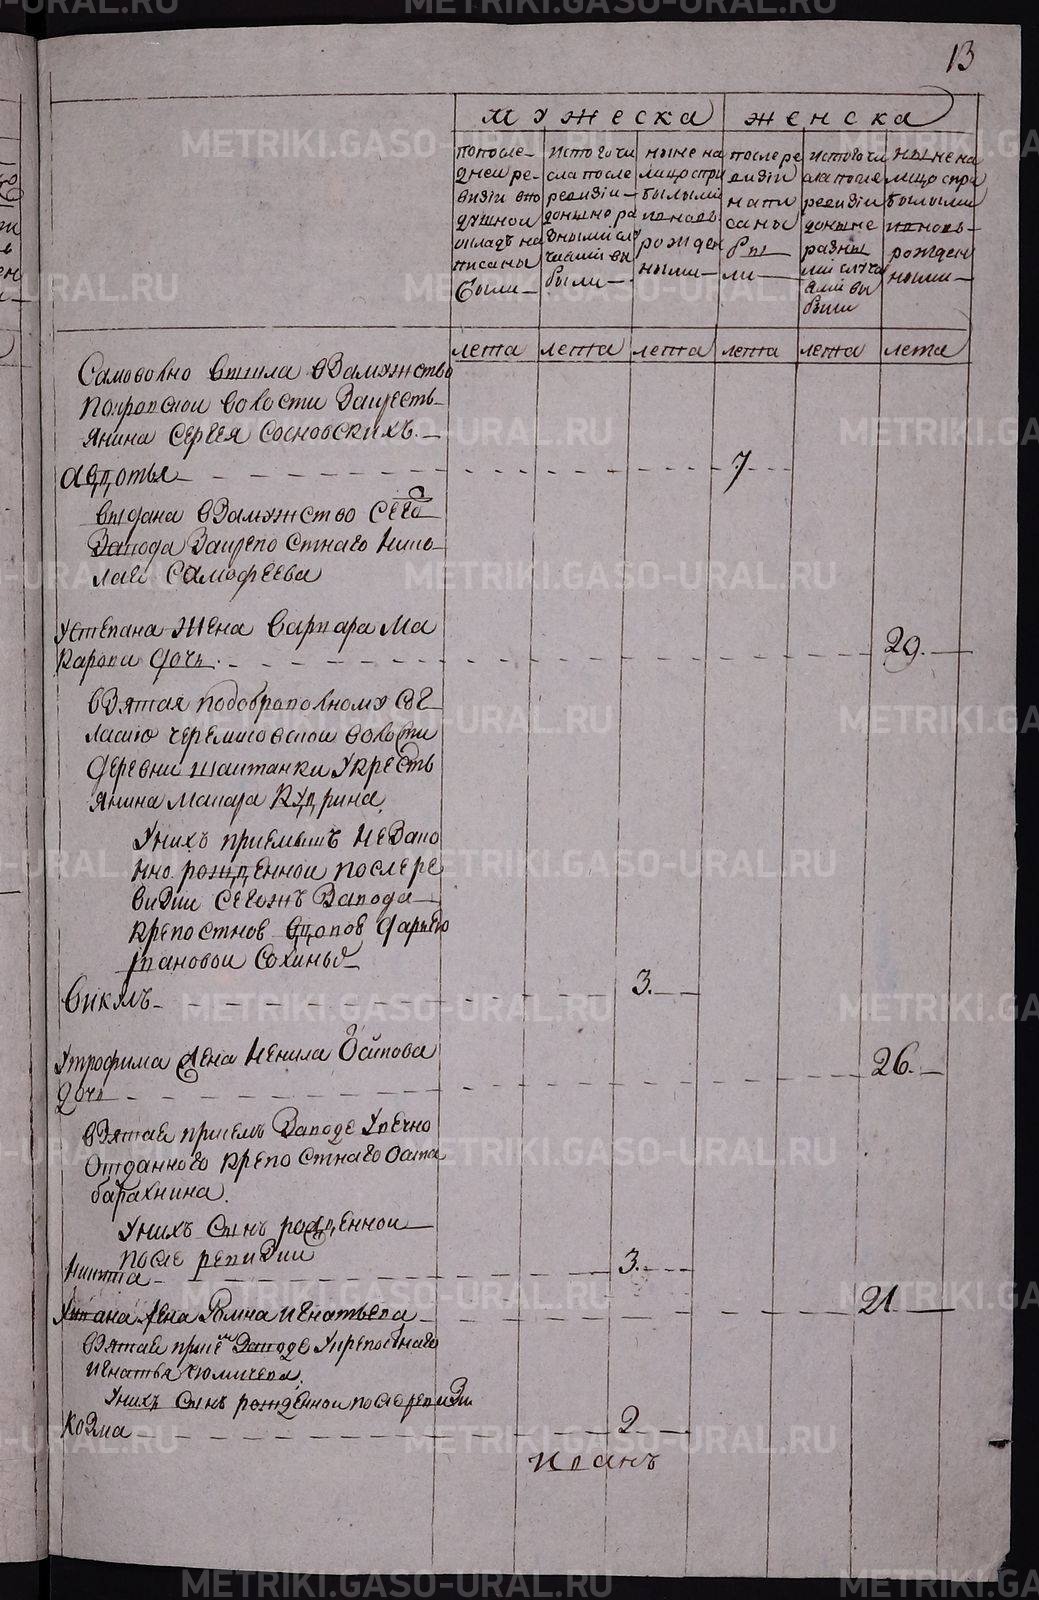 13
мужеска женска
попосле-
дней ре-
визии впо
душной
окладъ на
писаны
были-
истогочи
сла после
ревизии-
доныне ра
зными слу
чаями вы
были-
ныне на
лицо спри
былыми
и вновь
рожден
ными-
после ре
визии
напи
саны
бы
ли-
истогочи
сла после
ревизии
доныне
разны
ми случа
ями вы
были
ныне на
лицо спри
былыми
и вновь-
рожден
ными-
лета лета лета лета лета лета
Самовольно вышла взамужство
Покровской волости за кресть-
янина Сергея Сосновскихъ.-
Авдотья 7
выдана взамужство сего
завода за крепостнаго Нико-
лая Самофеева
У Степана жена Варвара Ма
карова дочь. 29.
взятая по добровольному сог
ласию Черемисской волости
деревни Шайтанки у кресть
янина Макара Кудрина.
У нихъ приемышъ незако
нно рожденной после ре
визии сегожъ завода
крепостной вдовой Дарьей
Софиньъ
Викулъ- 3.
У Трофима жена Ненила Осипова
дочь 26.
взятая в заводе у вечно
отданного крепостнаго Осипа
Барахнина.
У нихъ сынъ рожденной
после ревизии
Никита- 3.
У Ивана жена Игнатьева 21
взятая в заводе у крепостнаго
Игнатья
У нихъ сынъ рожденной после ревизии
Козма 2
Иванъ
METRIKI.GASO-URAL.RU